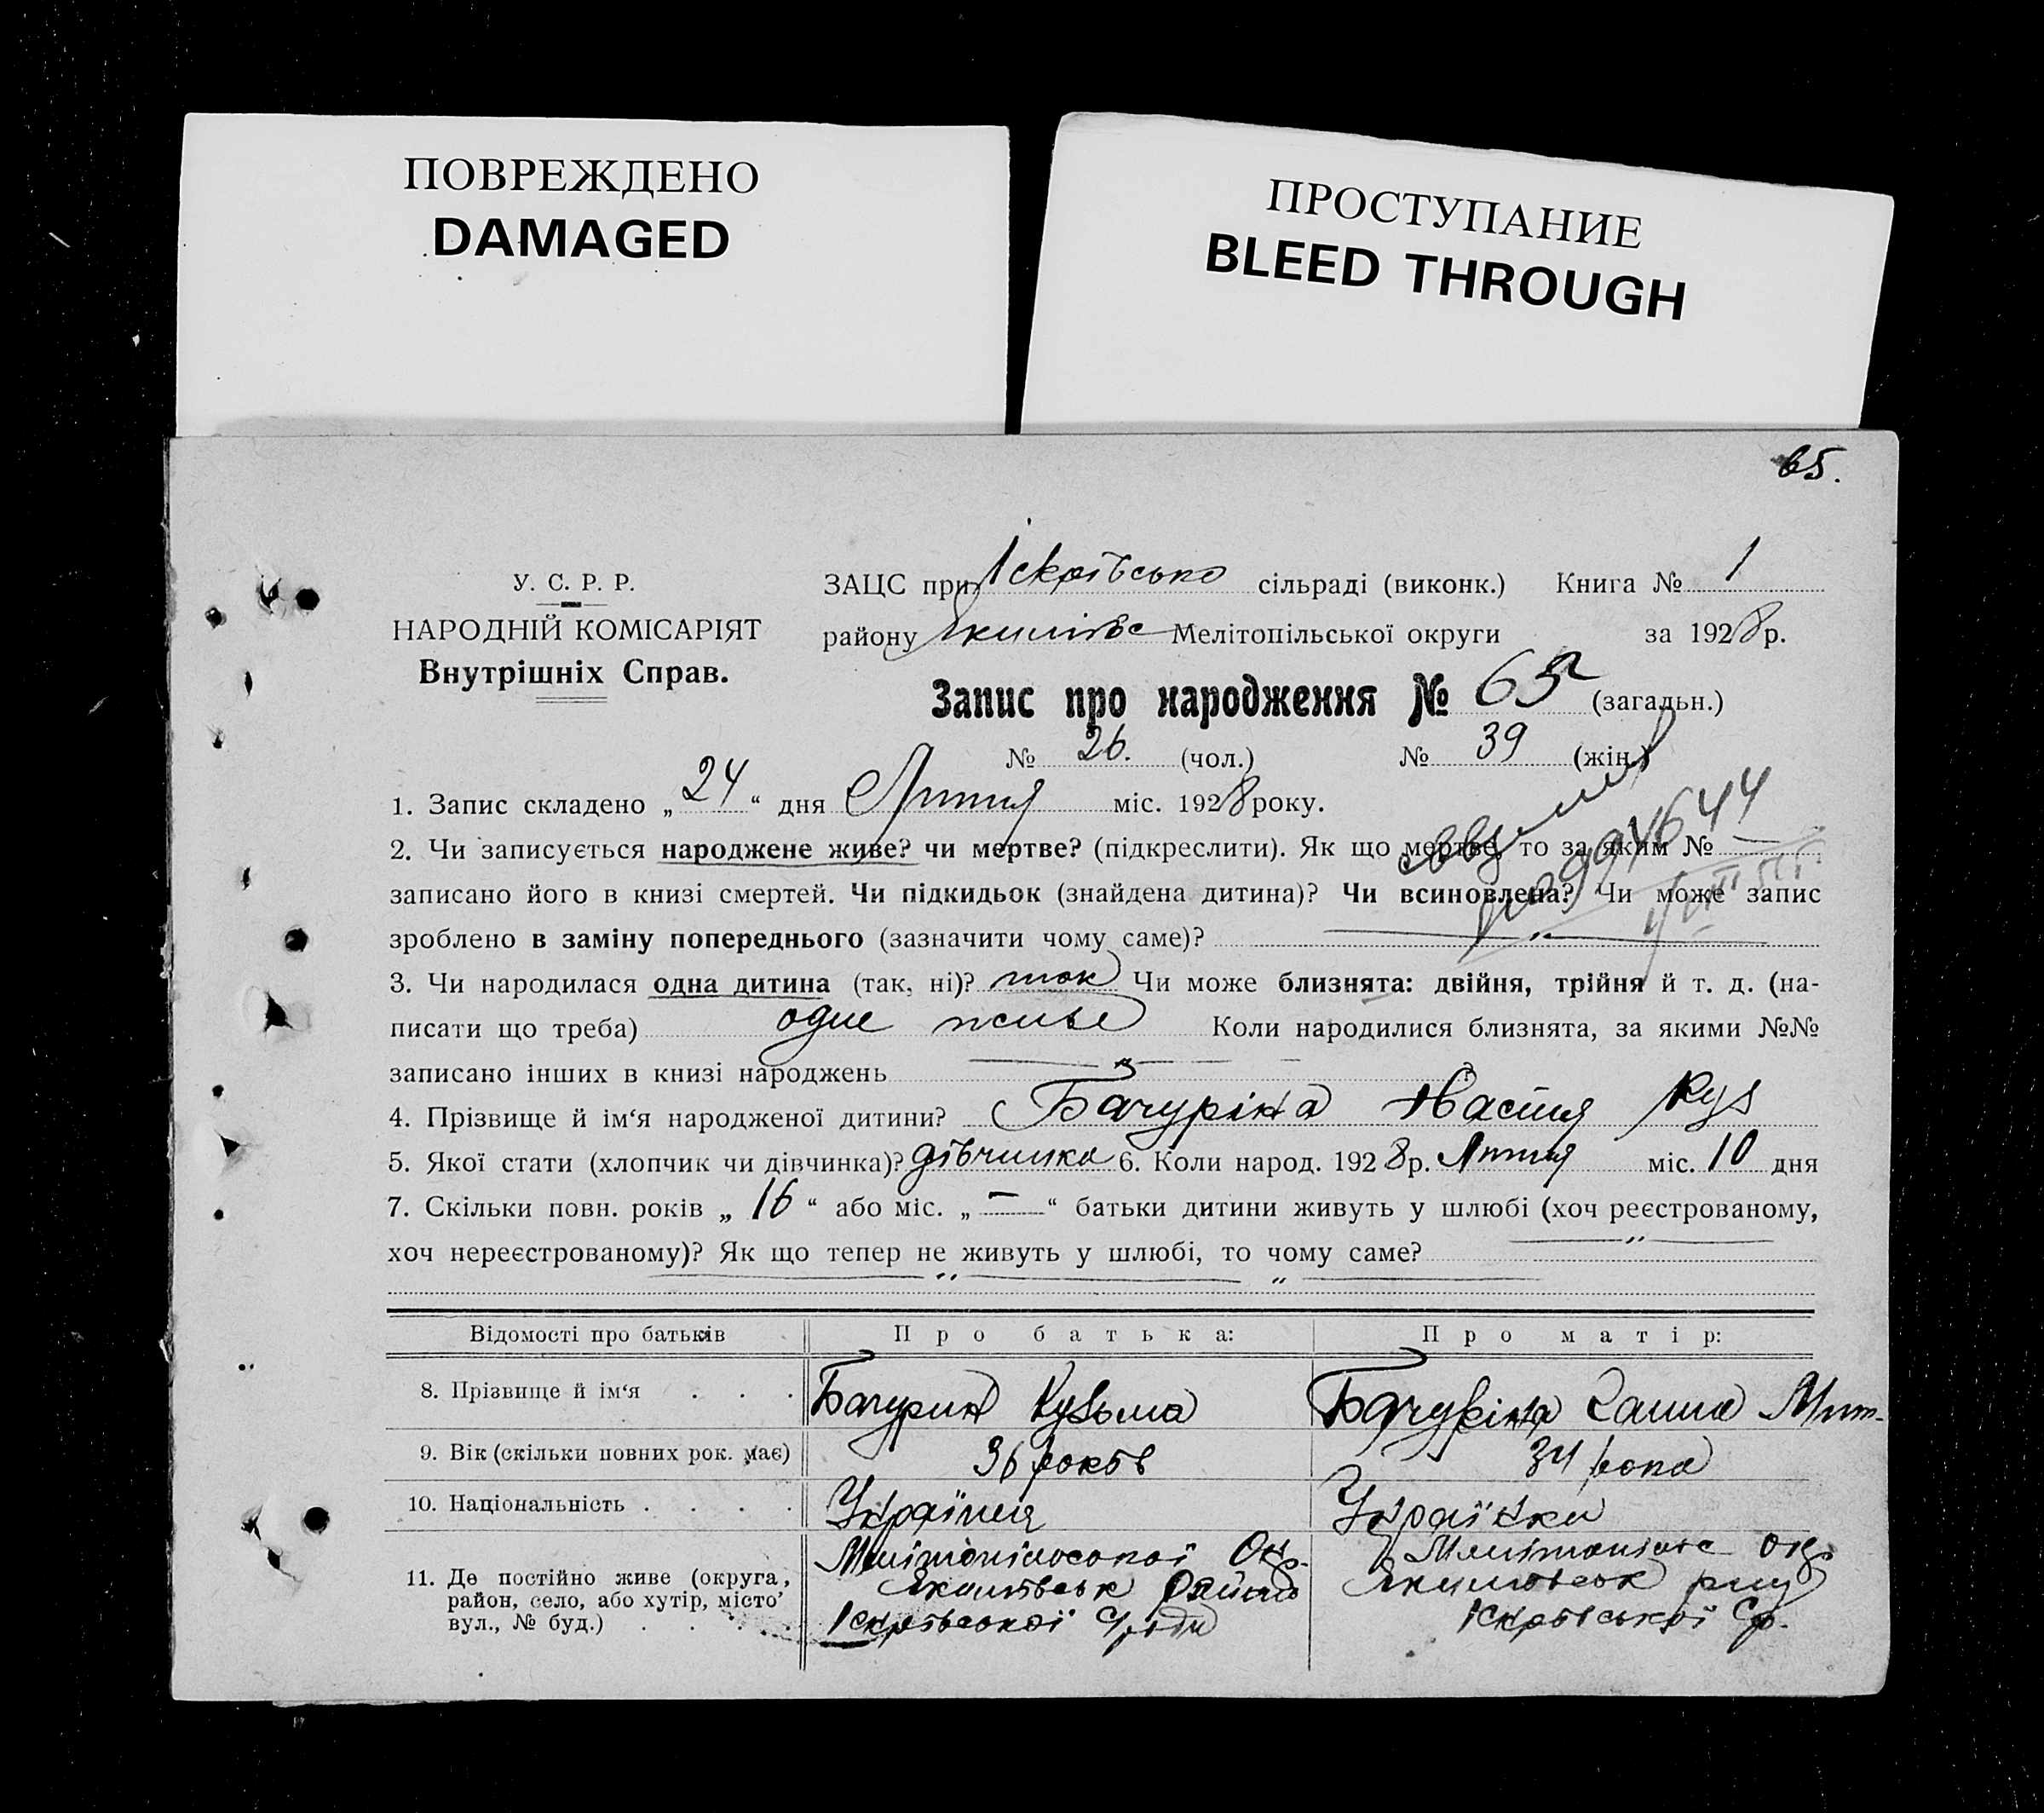 ПОВРЕЖДЕНО
DAMAGED
ПРОСТУПАНИЕ
BLEED THROUGH
65.
У. С. Р. Р.
НАРОДНІЙ КОМІСАРІЯТ
Внутрішніх Справ.
ЗАЦС при Іскрівсько сільраді (виконк.) Книга № 1
району Якимівс Мелітопільської округи за 1928 р.
Запис про народження № 65 (загальн.)
№ 26. (чол.) № 39 (жін.)
1. Запис складено „ 24 “ дня Липня міс. 1928 року.
2. Чи записується народжене живе? чи мертве? (підкреслити). Як що мертве, то за яким № —
записано його в книзі смертей. Чи підкидьок (знайдена дитина)? Чи всиновлена? Чи може запис
зроблено в заміну попереднього (зазначити чому саме)?
3. Чи народилася одна дитина (так, ні)? так Чи може близнята: двійня, трійня й т. д. (на-
писати що треба) одне живе Коли народилися близнята, за якими №№
записано інших в книзі народжень
4. Прізвище й ім‘я народженої дитини? Бачуріна Настя Куз
5. Якої стати (хлопчик чи дівчинка)? дівчинка 6. Коли народ. 1928 р. Липня міс. 10 дня
7. Скільки повн. років „ 16 “ або міс. „ — “ батьки дитини живуть у шлюбі (хоч реєстрованому,
хоч нереєстрованому)? Як що тепер не живуть у шлюбі, то чому саме?
Відомості про батьків Про батька: Про матір:
8. Прізвище й ім‘я . . . Бачурин Кузьма Бачуріна Ганна Мит-
9. Вік (скільки повних рок. має) 36 років 34 рока
10. Національність . . . . Українец Українка
11. Де постійно живе (округа, район, село, або хутір, місто’ вул., № буд.) . . . .
Мелітопільської Окр.
Якимівськ Району
Іскрівської С/ради
Мелітопільс Окр.
Якимівськ рну
Іскрівської Ср.